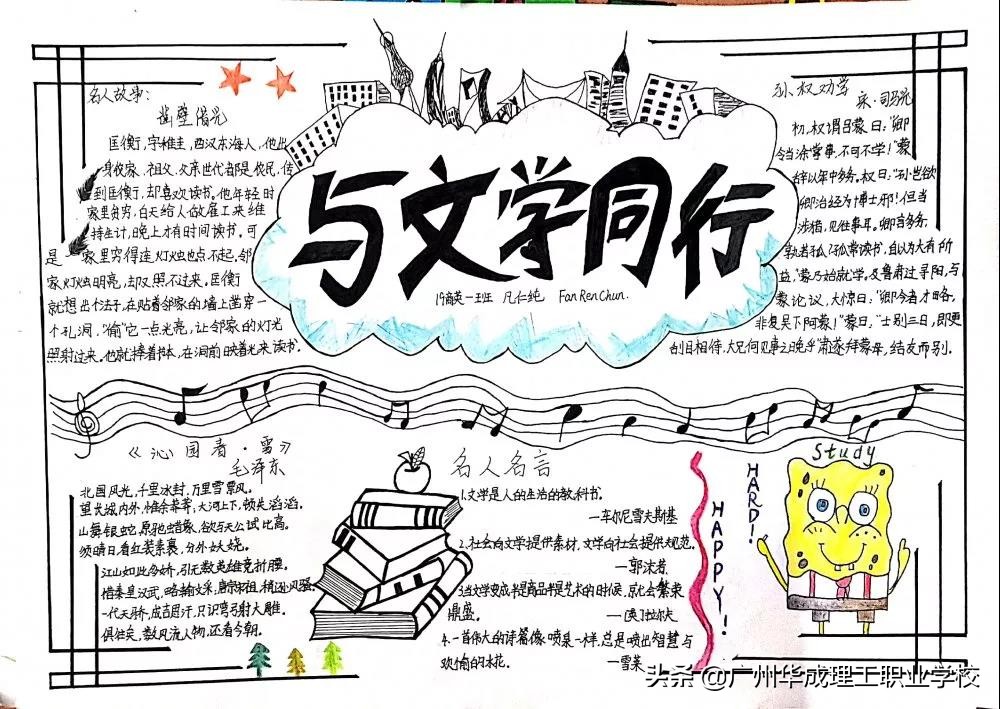 名人故事:
凿壁借光
匡衡,字稚圭,西汉东海人,他出
身农家,祖父、父亲世代都是农民,传
到匡衡,却喜欢读书。他年轻时
家里贫穷,白天给人做雇工来维
持生计,晚上才有时间读书。可
是家里穷得连灯烛也点不起,邻
家灯烛明亮,却又照不过来。匡衡
就想出个法子,在贴着邻家的墙上凿穿一
个孔洞,“偷”它一点光亮,让邻家的灯光
照射过来。他就捧着书本,在洞前映着光来读书。
与文学同行
19商英一班 凡仁纯 Fan Ren Chun.
孙权劝学
宋·司马光
初,权谓吕蒙曰:“卿
今当涂掌事,不可不学!”蒙
辞以军中多务。权曰:“孤岂欲
卿治经为博士邪!但当
涉猎,见往事耳。卿言多务,
孰若孤?孤常读书,自以为大有所
益。”蒙乃始就学。及鲁肃过寻阳,与
蒙论议,大惊曰:“卿今者才略,
非复吴下阿蒙!”蒙曰,“士别三日,即更
刮目相待,大兄何见事之晚乎!”肃遂拜蒙母,结友而别。
《沁园春·雪》
毛泽东
北国风光,千里冰封,万里雪飘。
望长城内外,惟余莽莽;大河上下,顿失滔滔。
山舞银蛇,原驰蜡象,欲与天公试比高。
须晴日,看红装素裹,分外妖娆。
江山如此多娇,引无数英雄竞折腰。
惜秦皇汉武,略输文采,唐宗宋祖,稍逊风骚。
一代天骄,成吉思汗,只识弯弓射大雕。
俱往矣,数风流人物,还看今朝。
名人名言
1.文学是人的生活的教科书。
—车尔尼雪夫斯基
2.社会向文学提供素材,文学向社会提供规范。
—郭沫若
3.当文学变成半是商品半是艺术的时候,就会繁荣
鼎盛。
—(英)拉尔夫
4.一首伟大的诗篇像喷泉一样,总是喷出智慧与
欢愉的水花。
—雪莱
HAPPY!
HARD!
Study
头条 @广州华成理工职业学校